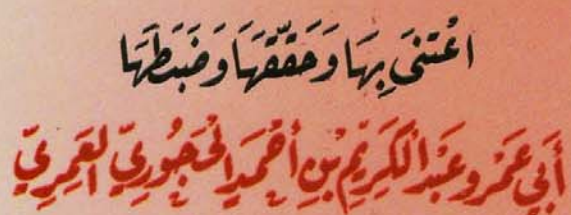 اعْتَنَى بِهَا وَحَقَّقَهَا وَضَبَطَهَا
أَبِي عَمْرو عَبْدِ الْكَرِيمِ بْنِ أَحْمَدَ الْحَجُورِيّ العَمِرِيّ